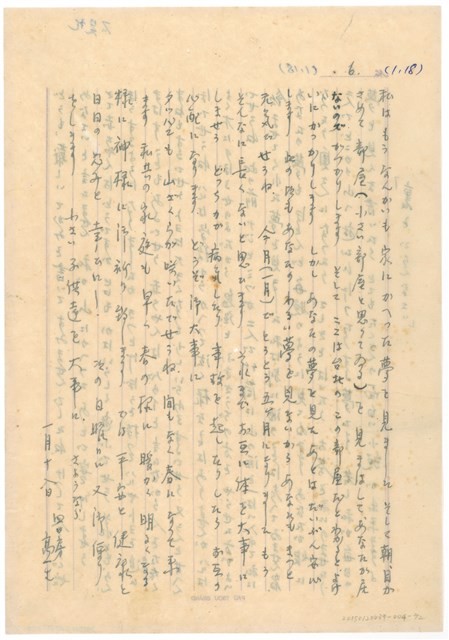 (1.18)
6.
(1.18)
私はもうなんかいも家にかへった夢を見ました そして朝目が
さめて部屋(小さい部屋と思ってゐる)を見まはしてあなたが居
ないのでがっかりします そしてここは台北のこの部屋だとわかると
いにがっかりします しかしあなたの夢を見たあとはだいぶん安心
します 此の頃もあなたのわるい夢を見ないからあなたもきっと
元気だせうね 今月(一月)でとうとう五ヶ月になりますね もう
そんなに長くないと思ひます それまでお互に体を大事に
しませう どっちかが病気したり事故を起したりしたらお互が
心配になります どうぞ御大事に
タッパンも山ざくらが咲いたでせうね 間もなく春になって来
ます 私共の家庭も早く春の様に暖かく明るくなる
様に神様に御祈り致します では平安と健康と
日日の恵みと幸とにし その日曜には又御便り
をします わさい子供達を大事に さようなら
一月十八日
高一生